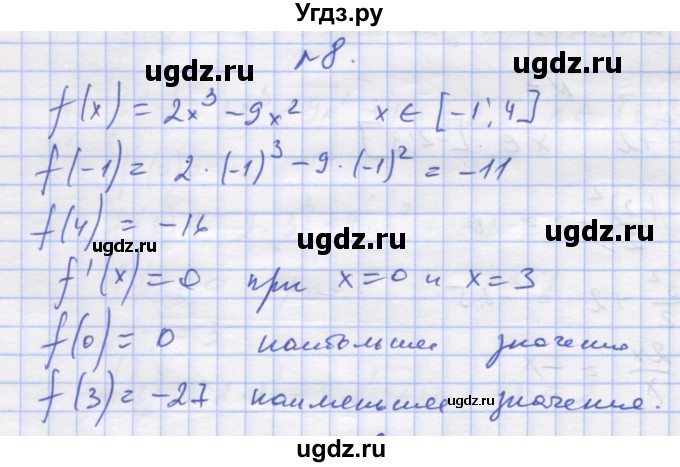 Угдз.ру
№8.
ugdz.ru ugdz.ru
f(x) = 2x³ - 9x² x ∈ [-1; 4]
f(-1) = 2·(-1)³ - 9·(-1)² = -11
f(4) = -16
ugdz.ru ugdz.ru ugdz.ru
f'(x) = 0 при x = 0 и x = 3
ugdz.ru
f(0) = 0 наибольшее значение
f(3) = -27 наименьшее значение.
ugdz.ru ugdz.ru
ugdz.ru